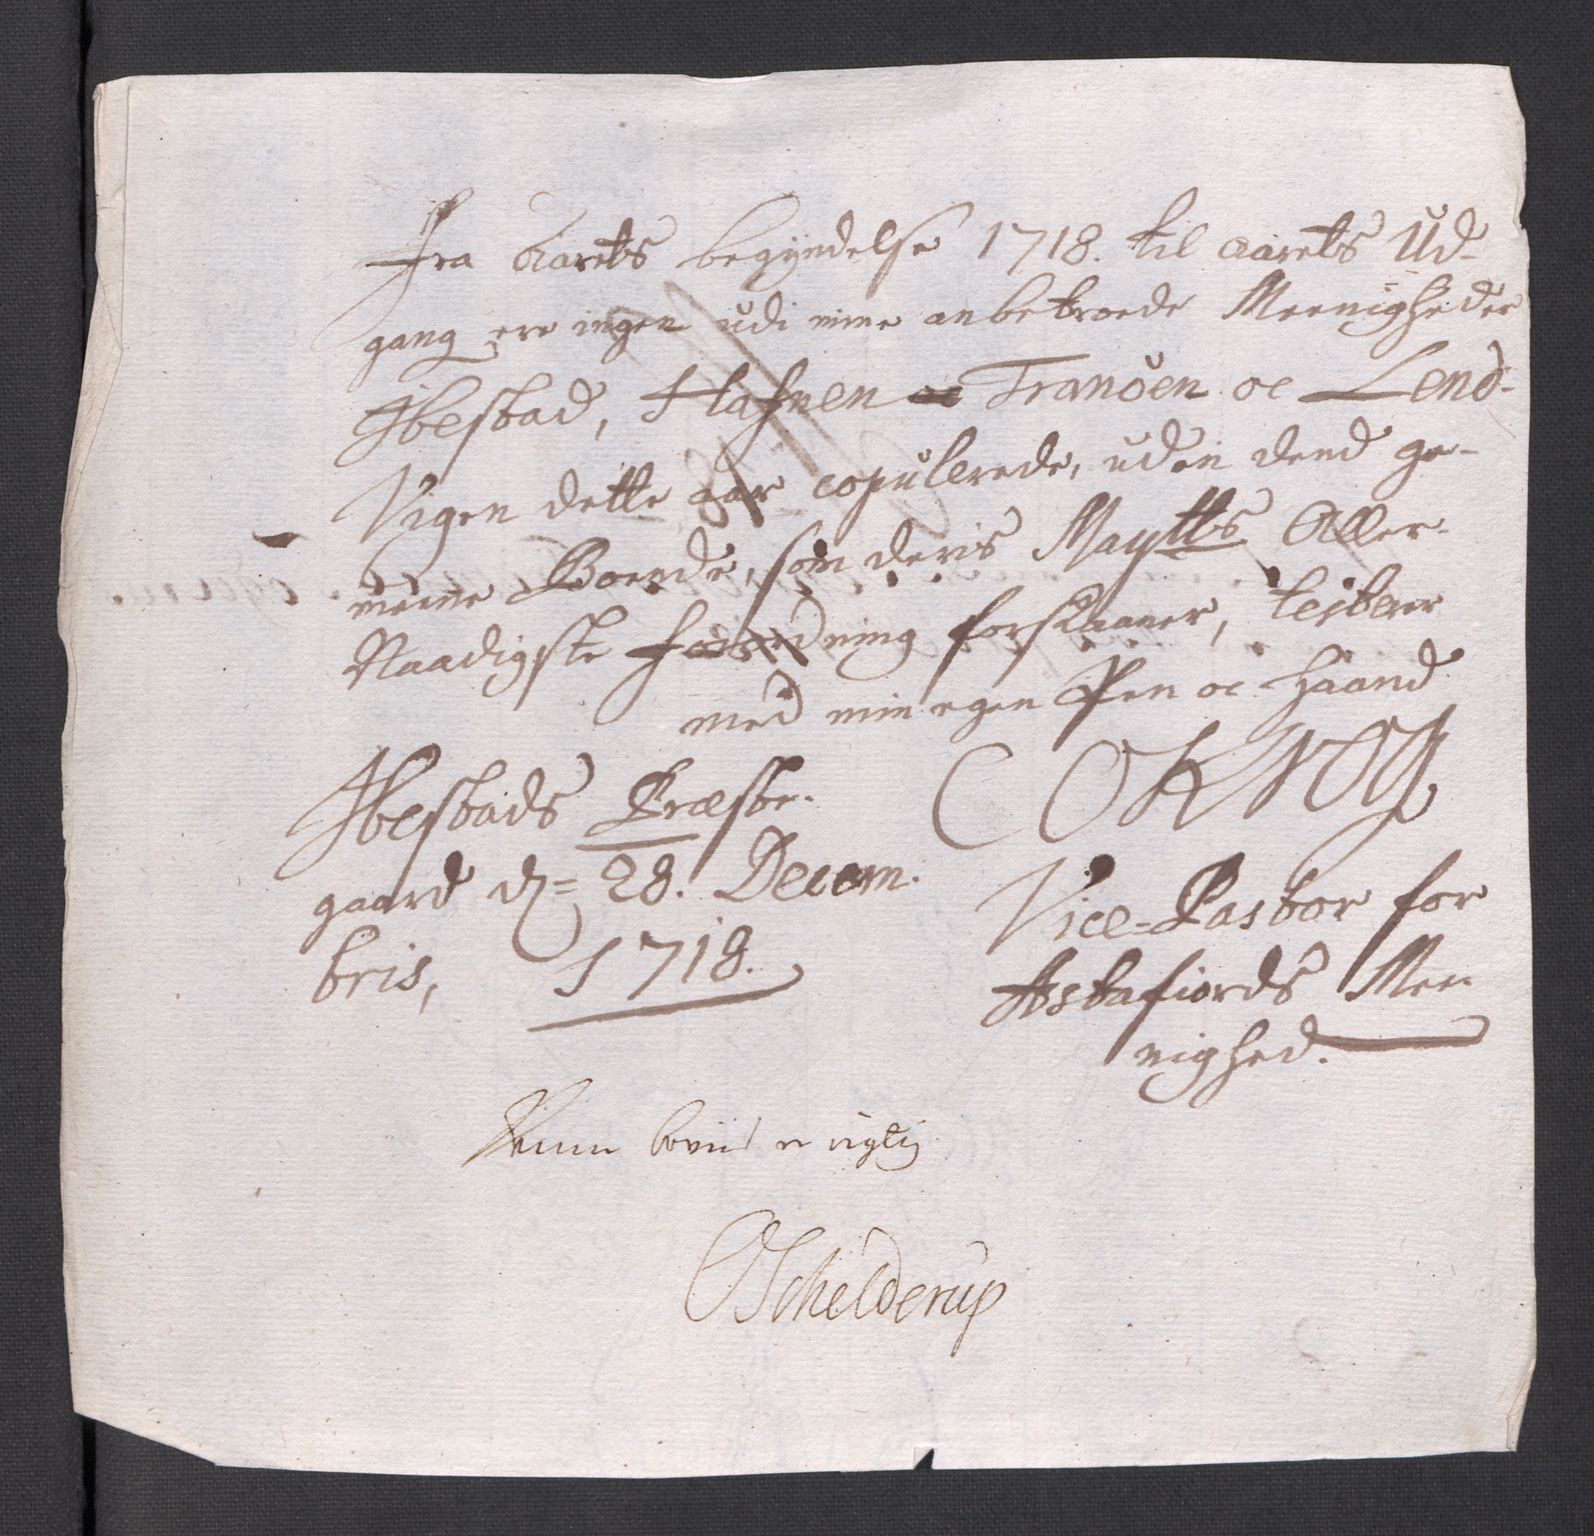 Fra Aarets begÿndelse 1718. til aarets Ud-
gang ere ingen udi mine anbetroede Meenigheder
Ibestad, Hafnen oc Tranöen oc Lend-
Vigen dette aar copulerede, uden dend ge-
meene Boende, som deris Maytts Aller-
Naadigste Forordning forskaaner, testerer
med min egen Pen oc Haand
Ibestads Præste-
gaard d= 28. Decem-
bris, 1718.
Vice-Pastor for
Astafiords Mee-
nighed.
rigtig
OSchelderup